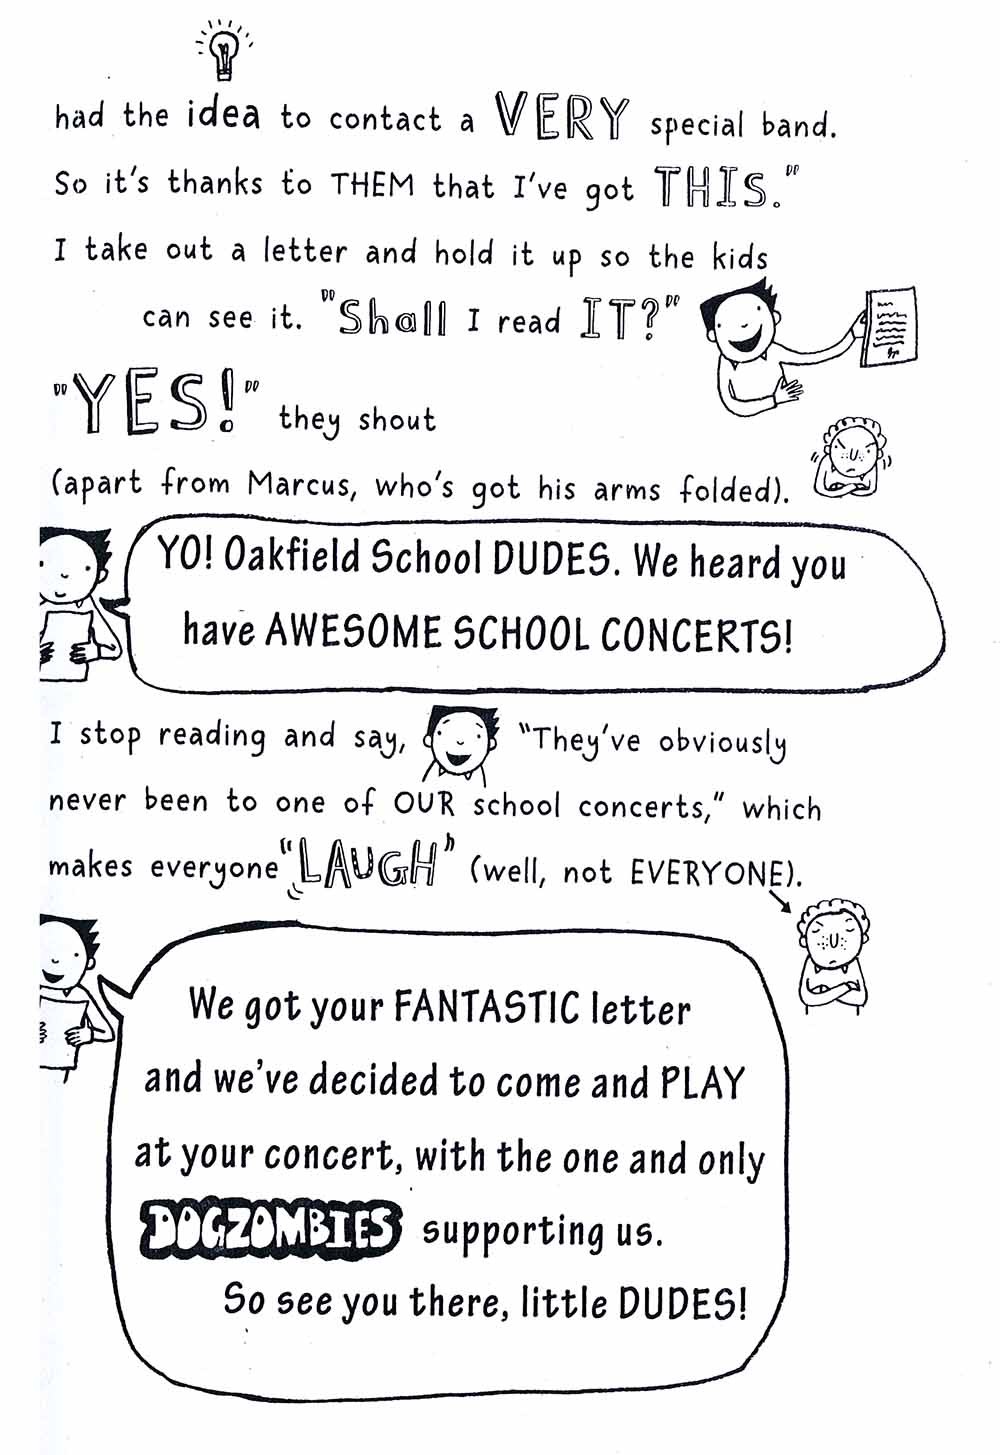 had the idea to contact a VERY special band.
So it's thanks to THEM that I've got THIS."
I take out a letter and hold it up so the kids
can see it. "Shall I read IT?"
"YES!" they shout
(apart from Marcus, who's got his arms folded).
YO! Oakfield School DUDES. We heard you
have AWESOME SCHOOL CONCERTS!
I stop reading and say, "They've obviously
never been to one of OUR school concerts," which
makes everyone "LAUGH" (well, not EVERYONE).
We got your FANTASTIC letter
and we've decided to come and PLAY
at your concert, with the one and only
DOGZOMBIES supporting us.
So see you there, little DUDES!